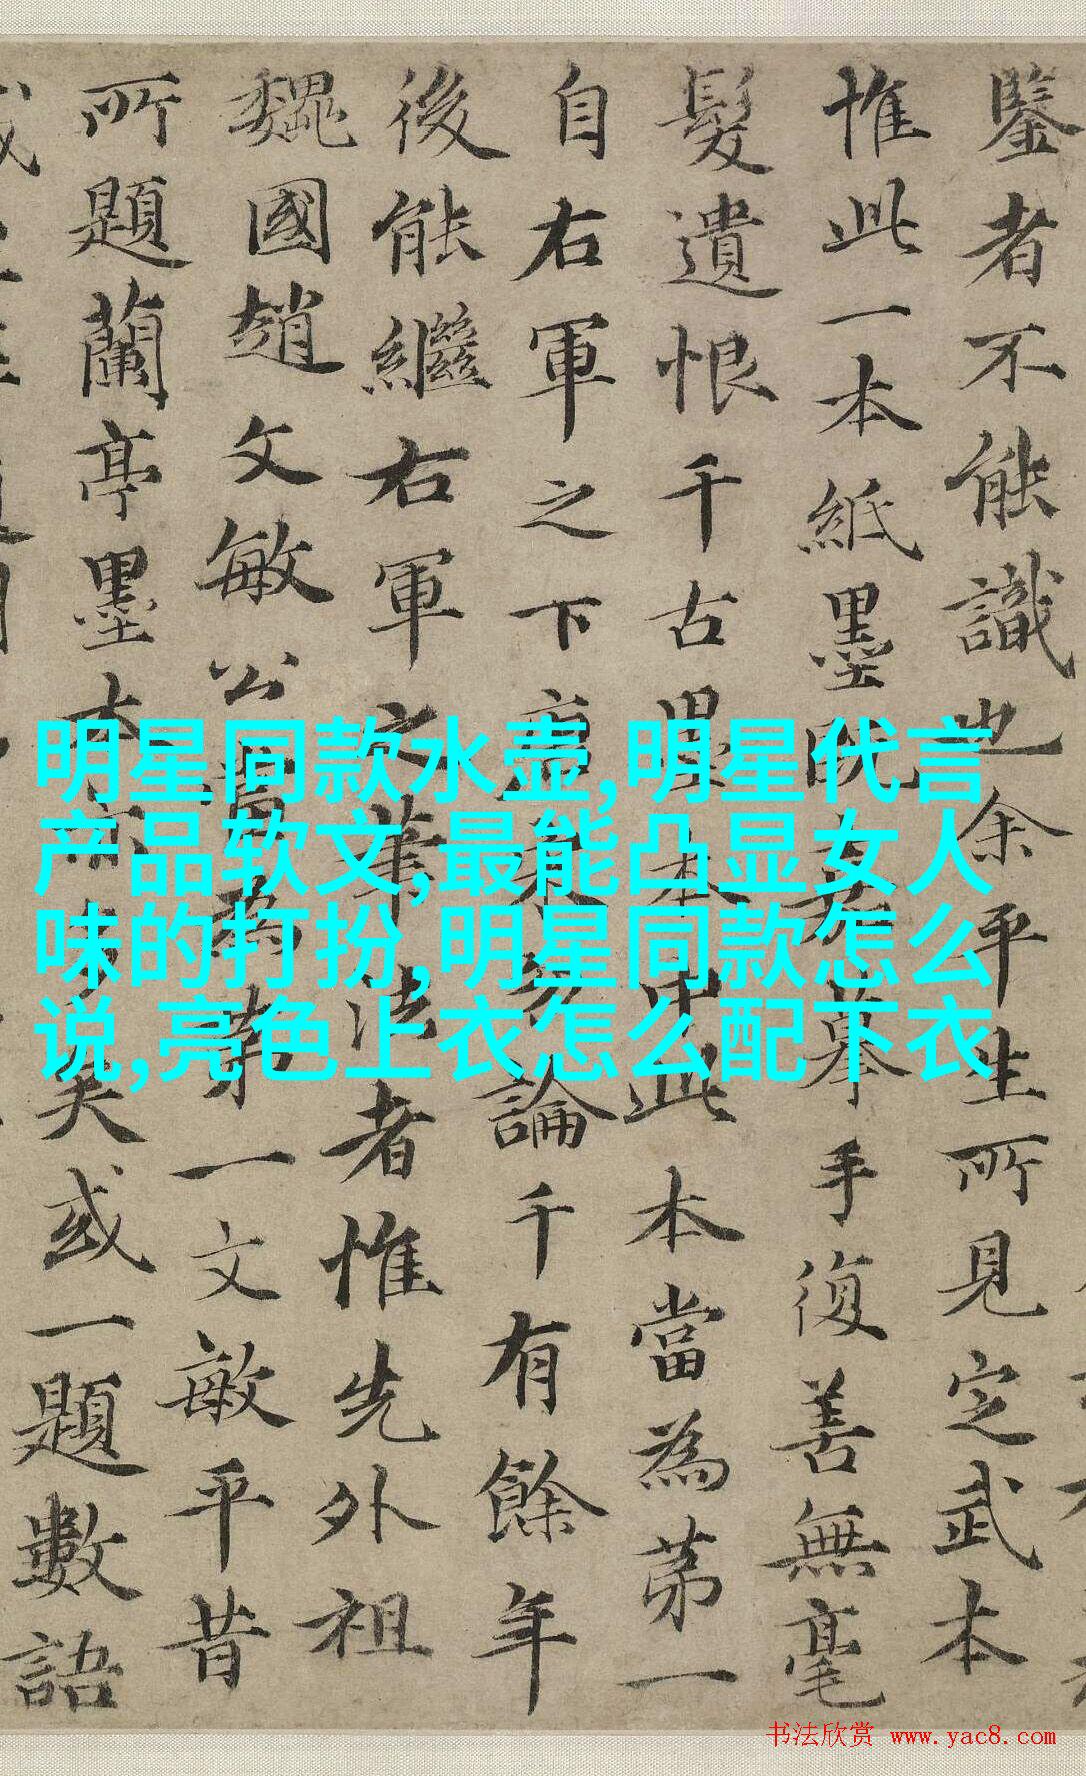 鑒者不能識也余平生所見定武本
惟此一本紙墨既摹手復善無毫
髮遺恨千古墨本中此本當為第一
自右軍之下唐宋勿論千有餘年
後能繼右軍之筆法者惟先外祖
魏國趙文敏公書為第一文敏平昔
所題蘭亭墨本矣或一題數語
明星同款水壶,明星代言
产品软文,最能凸显女人
味的打扮,明星同款怎么
说,亮色上衣怎么配下衣
书法欣赏 www.yac8.com